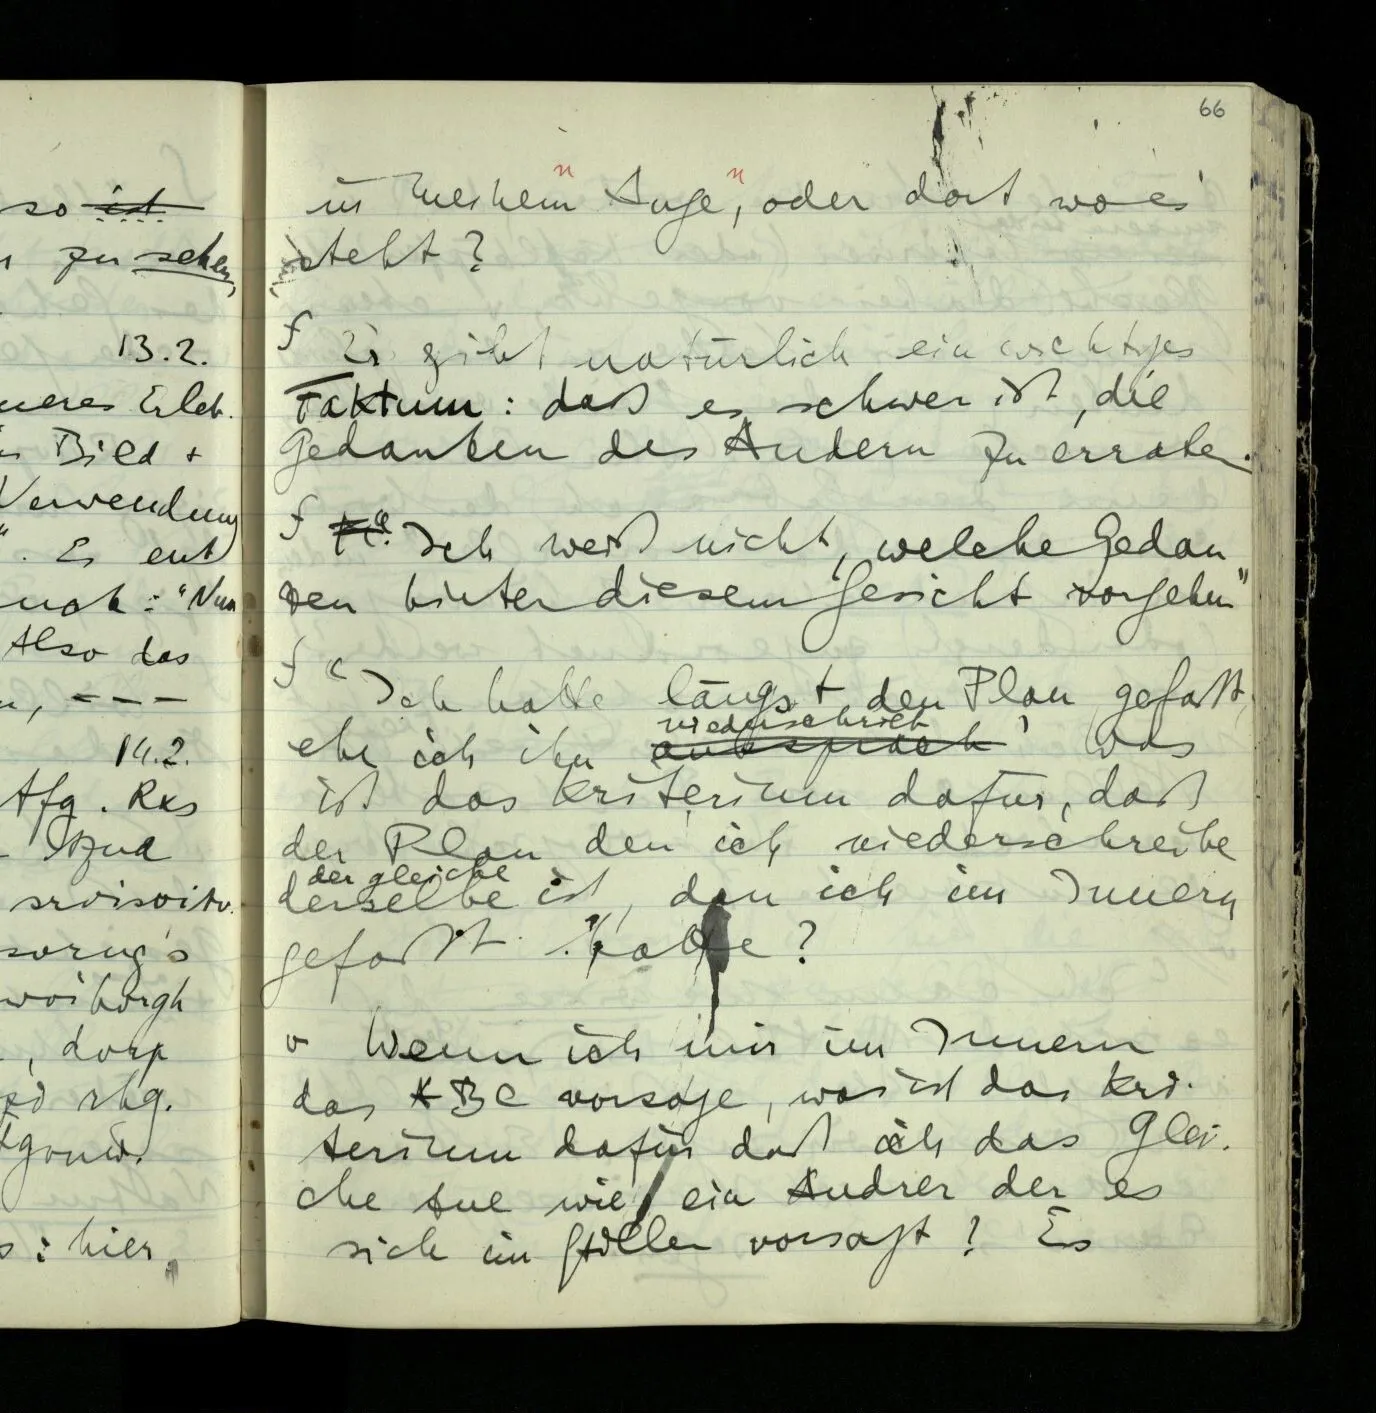 so ist
zu sehen,
13.2.
neres Erleb.
Bild +
Verwendung
". Es ent
noch: "Nun
Also das
n, – – –
14.2.
Afg. Rxs
, dorp
rhg.
s: hier,
66
in meinem "Auge", oder dort wo es
steht?
f Es gibt natürlich ein wichtiges
Faktum: daß es schwer ist, die
Gedanken des Andern zu erraten.
f "Ich weiß nicht, welche Gedan
ken hinter diesem Gesicht vorgehen"
f "Ich hatte längst den Plan gefaßt,
niederschrieb
ehe ich ihn aussprach" Was
ist das Kriterium dafür, daß
der Plan den ich niederschreibe
der gleiche
derselbe ist, den ich im Innern
gefaßt hatte?
v Wenn ich mir im Innern
das ABC vorsage, was ist das Kri-
terium dafür daß ich das Glei-
che tue wie ein Andrer der es
sich im Stillen vorsagt? Es